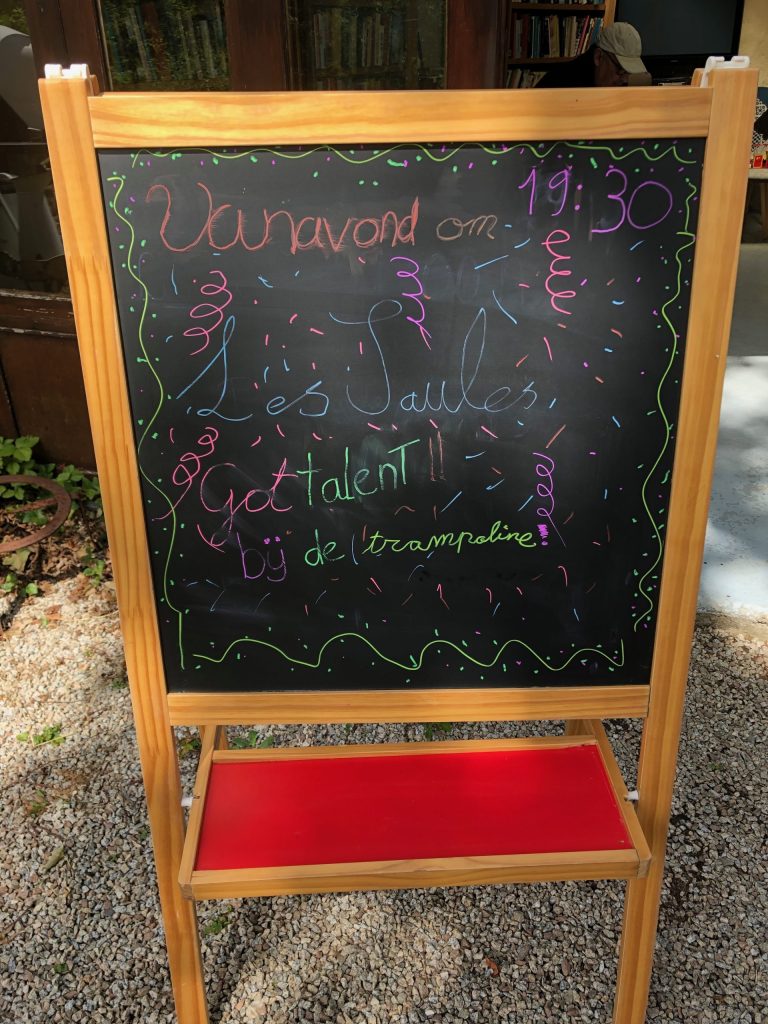 Vanavond om 19:30
Les Saules
Got talenT !!
bij de trampoline